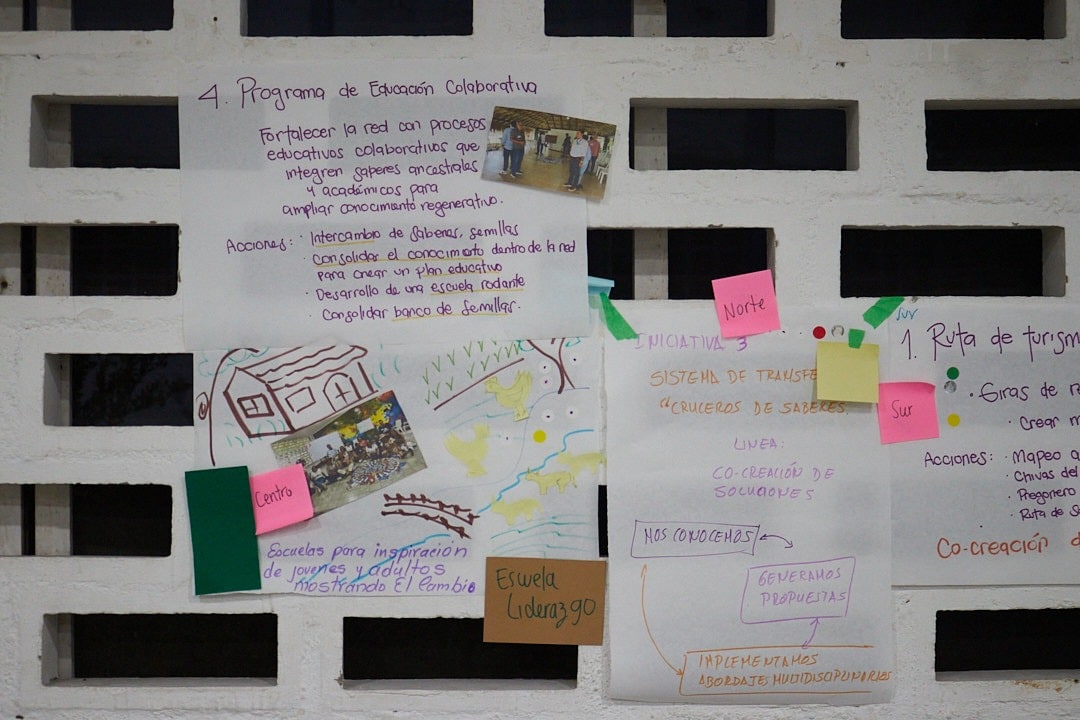 4. Programa de Educación Colaborativa
Fortalecer la red con procesos
educativos colaborativos que
integren saberes ancestrales
y académicos para
ampliar conocimiento regenerativo.
Acciones: · Intercambio de saberes, semillas
· Consolidar el conocimiento dentro de la red
para crear un plan educativo
· Desarrollo de una escuela rodante
· Consolidar banco de semillas.
Centro
Escuelas para inspiración
de jovenes y adultos
mostrando El Cambio
Escuela
Liderazgo
Norte
INICIATIVA 3
SISTEMA DE TRANSFE
"CRUCEROS DE SABERES
LINEA:
CO-CREACIÓN DE
SOLUCIONES
NOS CONOCEMOS
GENERAMOS
PROPUESTAS
IMPLEMENTAMOS
ABORDAJES MULTIDISCIPLINARIOS
Sur
Sur
1. Ruta de turism
· Giras de
· Crear
Acciones: · Mapeo a
· Chivas del
· Pregonero
· Ruta de
Co-creación